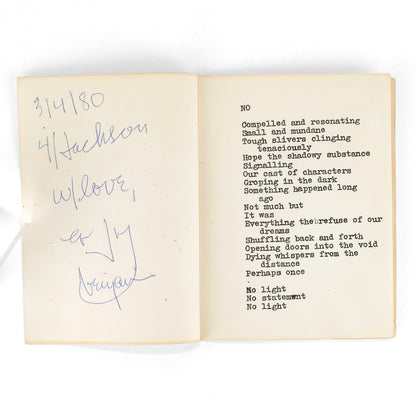 3/4/80
Jackson
w/love,
NO
Compelled and resonating
Small and mundane
Tough slivers clinging
tenaciously
Hope the shadowy substance
Signalling
Our cast of characters
Groping in the dark
Something happened long
ago
Not much but
It was
Everything the refuse of our
dreams
Shuffling back and forth
Opening doors into the void
Dying whispers from the
distance
Perhaps once
No light
No statement
No light